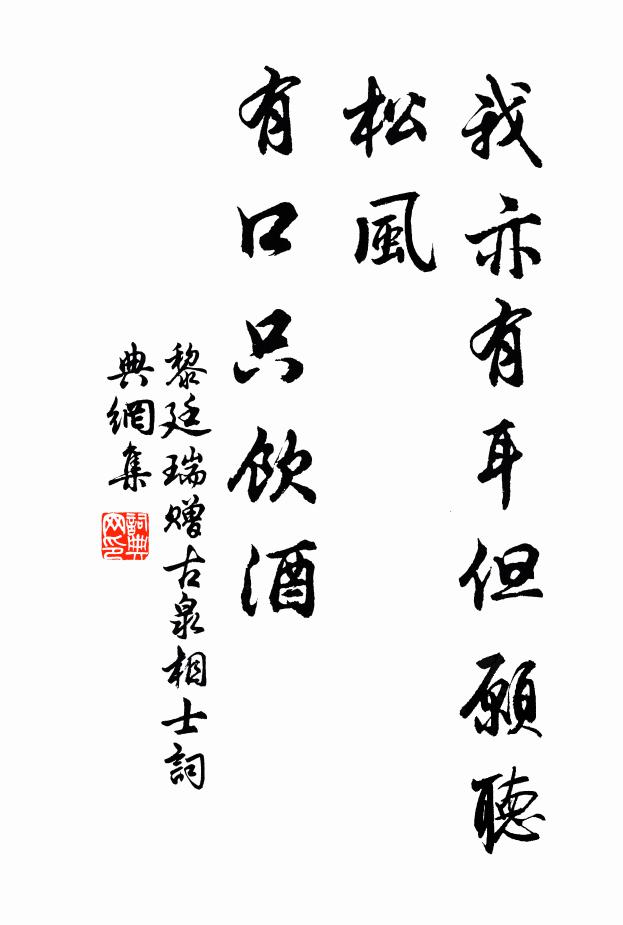 我亦有耳但願聽
松風
有口只飲酒
黎廷瑞赠古泉相士詞
典網集
詞典
网印